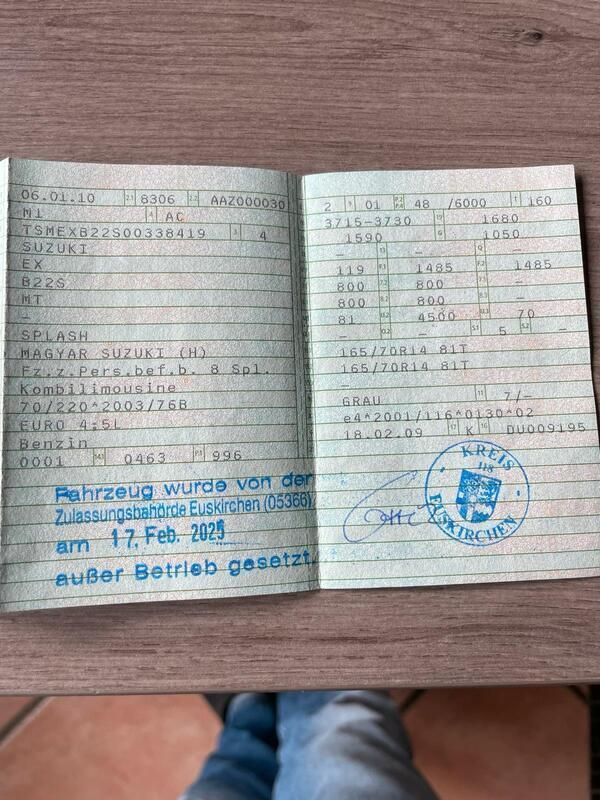 06.01.10 2.1 8306 2.2 AAZ000030
M1 4 AC
TSMEXB22S00338419 3 4
SUZUKI
EX
B22S
MT
–
SPLASH
MAGYAR SUZUKI (H)
Fz.z.Pers.bef.b. 8 Spl.
Kombilimousine
70/220*2003/76B
EURO 4;5L
Benzin
0001 0463 P.1 996
Fahrzeug wurde von der
Zulassungsbehörde Euskirchen (05366)
am 17. Feb. 2025
außer Betrieb gesetzt.
2 9 01 P.2 P.4 48 /6000 T 160
3715-3730 1680
1590 G 1050
– – –
119 F.1 1485 F.2 1485
800 800 –
800 800 –
81 4500 70
– – S.1 5 S.2 –
165/70R14 81T
165/70R14 81T
–
GRAU 11 7/–
e4*2001/116*0130*02
18.02.09 17 K 16 DU009195
KREIS
118
EUSKIRCHEN